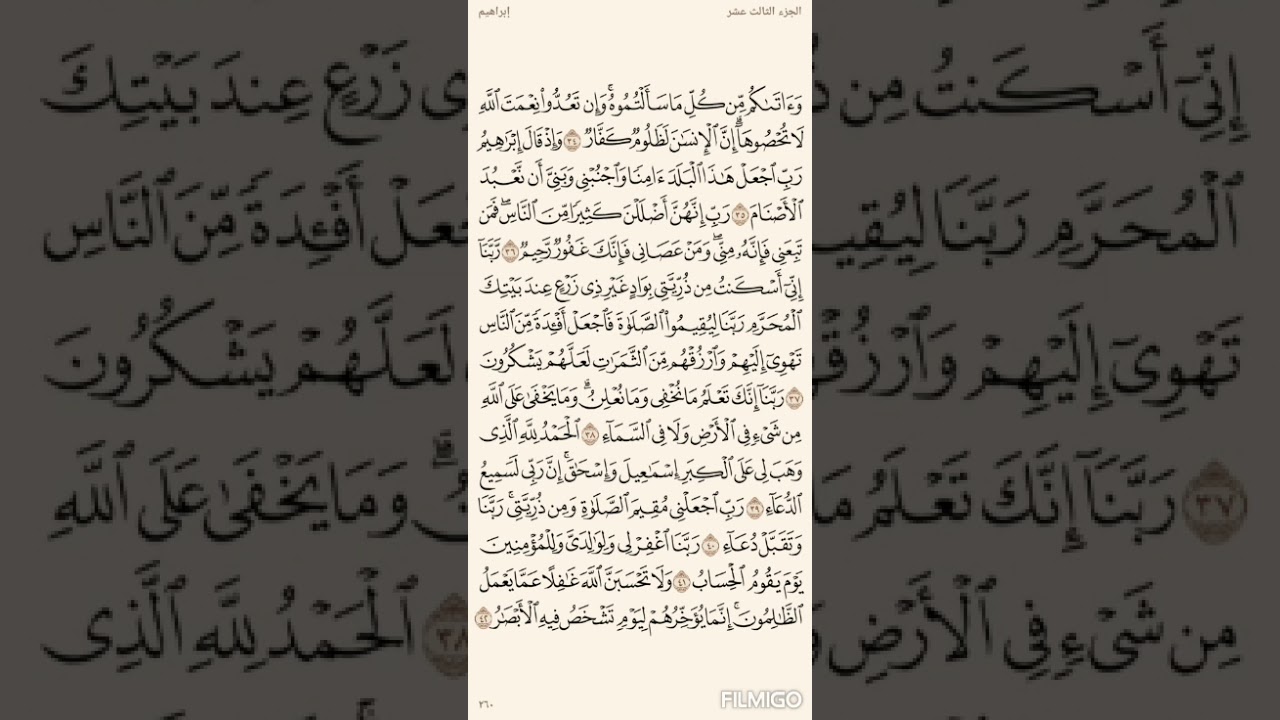 الجزء الثالث عشر
إبراهيم
وَءَاتَىٰكُم مِّن كُلِّ مَا سَأَلْتُمُوهُ ۚ وَإِن تَعُدُّوا۟ نِعْمَتَ ٱللَّهِ
لَا تُحْصُوهَآ ۗ إِنَّ ٱلْإِنسَـٰنَ لَظَلُومٌ كَفَّارٌ ٣٤ وَإِذْ قَالَ إِبْرَٰهِيمُ
رَبِّ ٱجْعَلْ هَـٰذَا ٱلْبَلَدَ ءَامِنًا وَٱجْنُبْنِى وَبَنِىَّ أَن نَّعْبُدَ
ٱلْأَصْنَامَ ٣٥ رَبِّ إِنَّهُنَّ أَضْلَلْنَ كَثِيرًا مِّنَ ٱلنَّاسِ ۖ فَمَن
تَبِعَنِى فَإِنَّهُۥ مِنِّى ۖ وَمَنْ عَصَانِى فَإِنَّكَ غَفُورٌ رَّحِيمٌ ٣٦ رَّبَّنَآ
إِنِّىٓ أَسْكَنتُ مِن ذُرِّيَّتِى بِوَادٍ غَيْرِ ذِى زَرْعٍ عِندَ بَيْتِكَ
ٱلْمُحَرَّمِ رَبَّنَا لِيُقِيمُوا۟ ٱلصَّلَوٰةَ فَٱجْعَلْ أَفْـِٔدَةً مِّنَ ٱلنَّاسِ
تَهْوِىٓ إِلَيْهِمْ وَٱرْزُقْهُم مِّنَ ٱلثَّمَرَٰتِ لَعَلَّهُمْ يَشْكُرُونَ
٣٧ رَبَّنَآ إِنَّكَ تَعْلَمُ مَا نُخْفِى وَمَا نُعْلِنُ ۗ وَمَا يَخْفَىٰ عَلَى ٱللَّهِ
مِن شَىْءٍ فِى ٱلْأَرْضِ وَلَا فِى ٱلسَّمَآءِ ٣٨ ٱلْحَمْدُ لِلَّهِ ٱلَّذِى
وَهَبَ لِى عَلَى ٱلْكِبَرِ إِسْمَـٰعِيلَ وَإِسْحَـٰقَ ۚ إِنَّ رَبِّى لَسَمِيعُ
ٱلدُّعَآءِ ٣٩ رَبِّ ٱجْعَلْنِى مُقِيمَ ٱلصَّلَوٰةِ وَمِن ذُرِّيَّتِى ۚ رَبَّنَا
وَتَقَبَّلْ دُعَآءِ ٤٠ رَبَّنَا ٱغْفِرْ لِى وَلِوَٰلِدَىَّ وَلِلْمُؤْمِنِينَ
يَوْمَ يَقُومُ ٱلْحِسَابُ ٤١ وَلَا تَحْسَبَنَّ ٱللَّهَ غَـٰفِلًا عَمَّا يَعْمَلُ
ٱلظَّـٰلِمُونَ ۚ إِنَّمَا يُؤَخِّرُهُمْ لِيَوْمٍ تَشْخَصُ فِيهِ ٱلْأَبْصَـٰرُ ٤٢
٢٦٠
FILMIGO